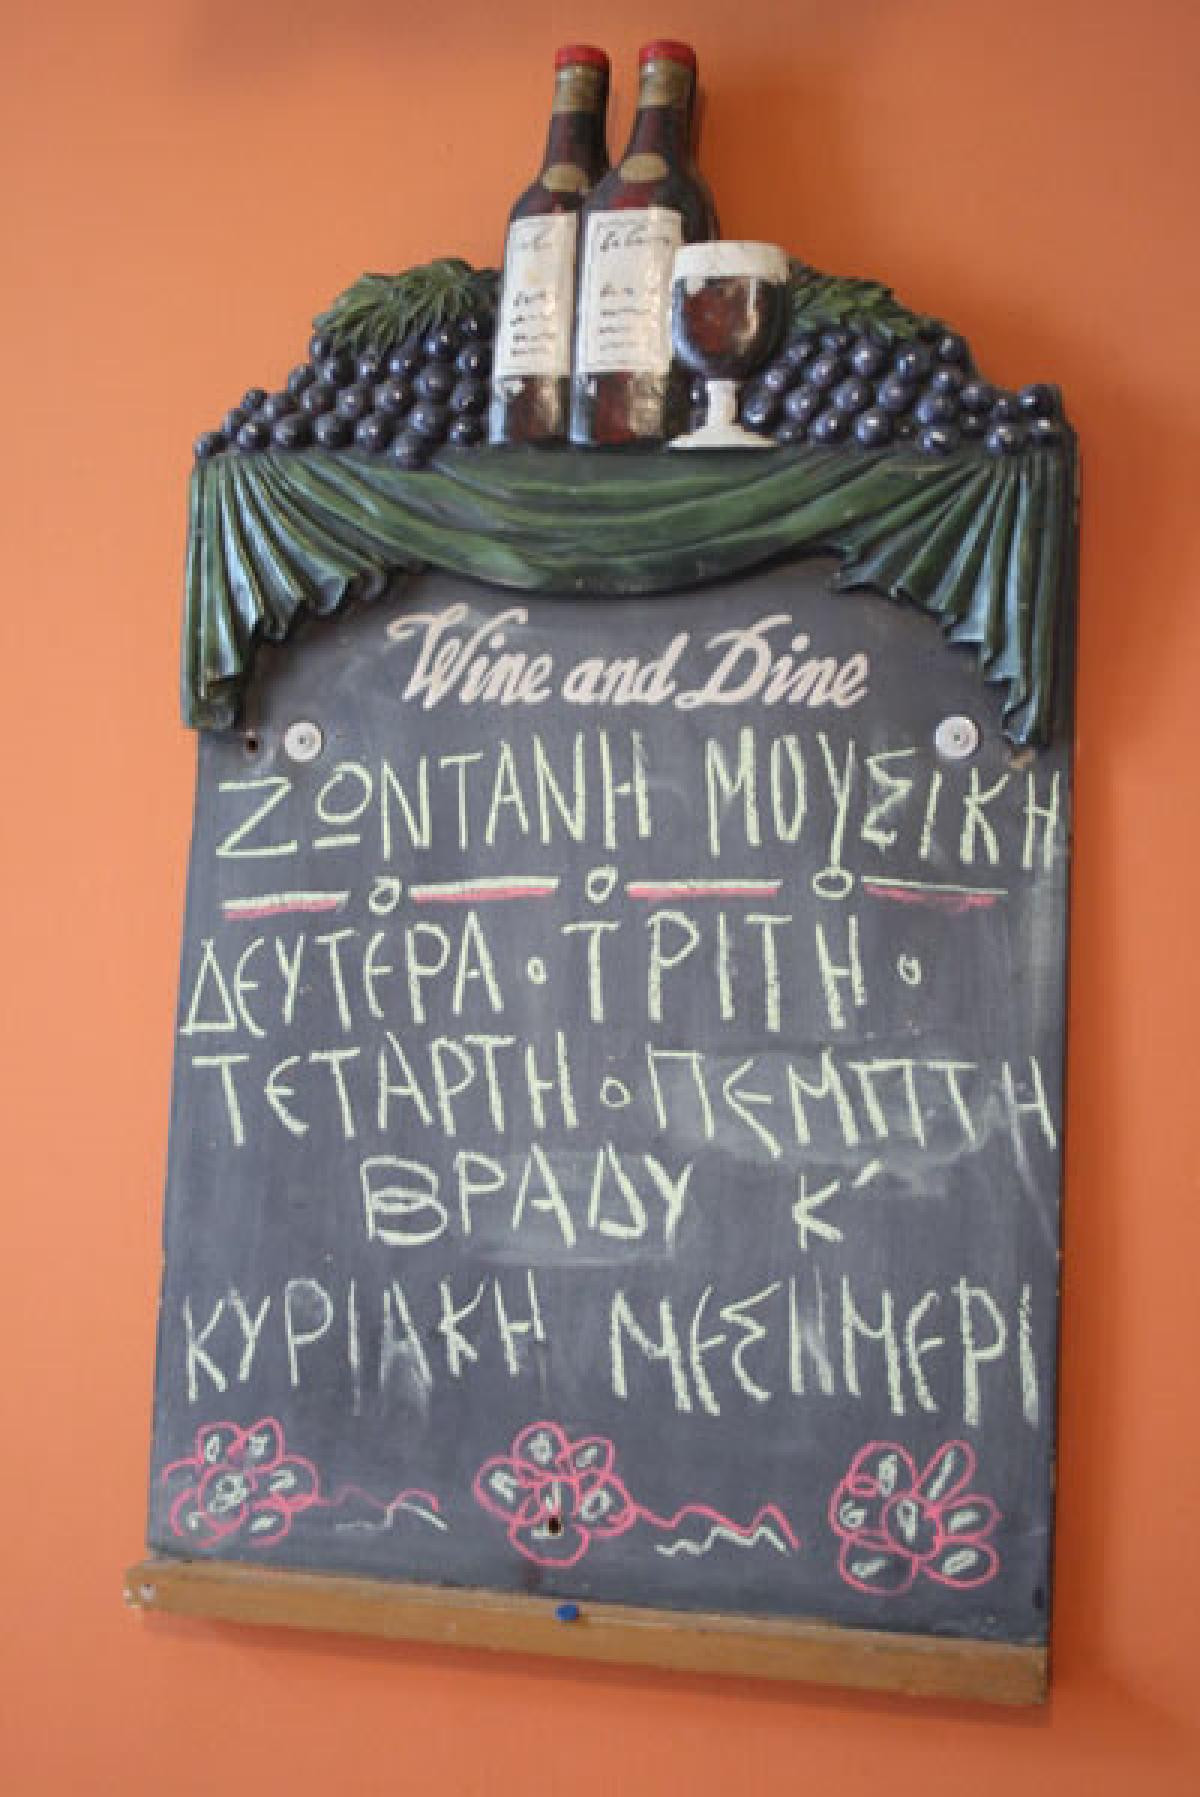 Wine and Dine
ΖΩΝΤΑΝΗ ΜΟΥΣΙΚΗ
ΔΕΥΤΕΡΑ · ΤΡΙΤΗ ·
ΤΕΤΑΡΤΗ · ΠΕΜΠΤΗ
ΒΡΑΔΥ Κ΄
ΚΥΡΙΑΚΗ ΜΕΣΗΜΕΡΙ